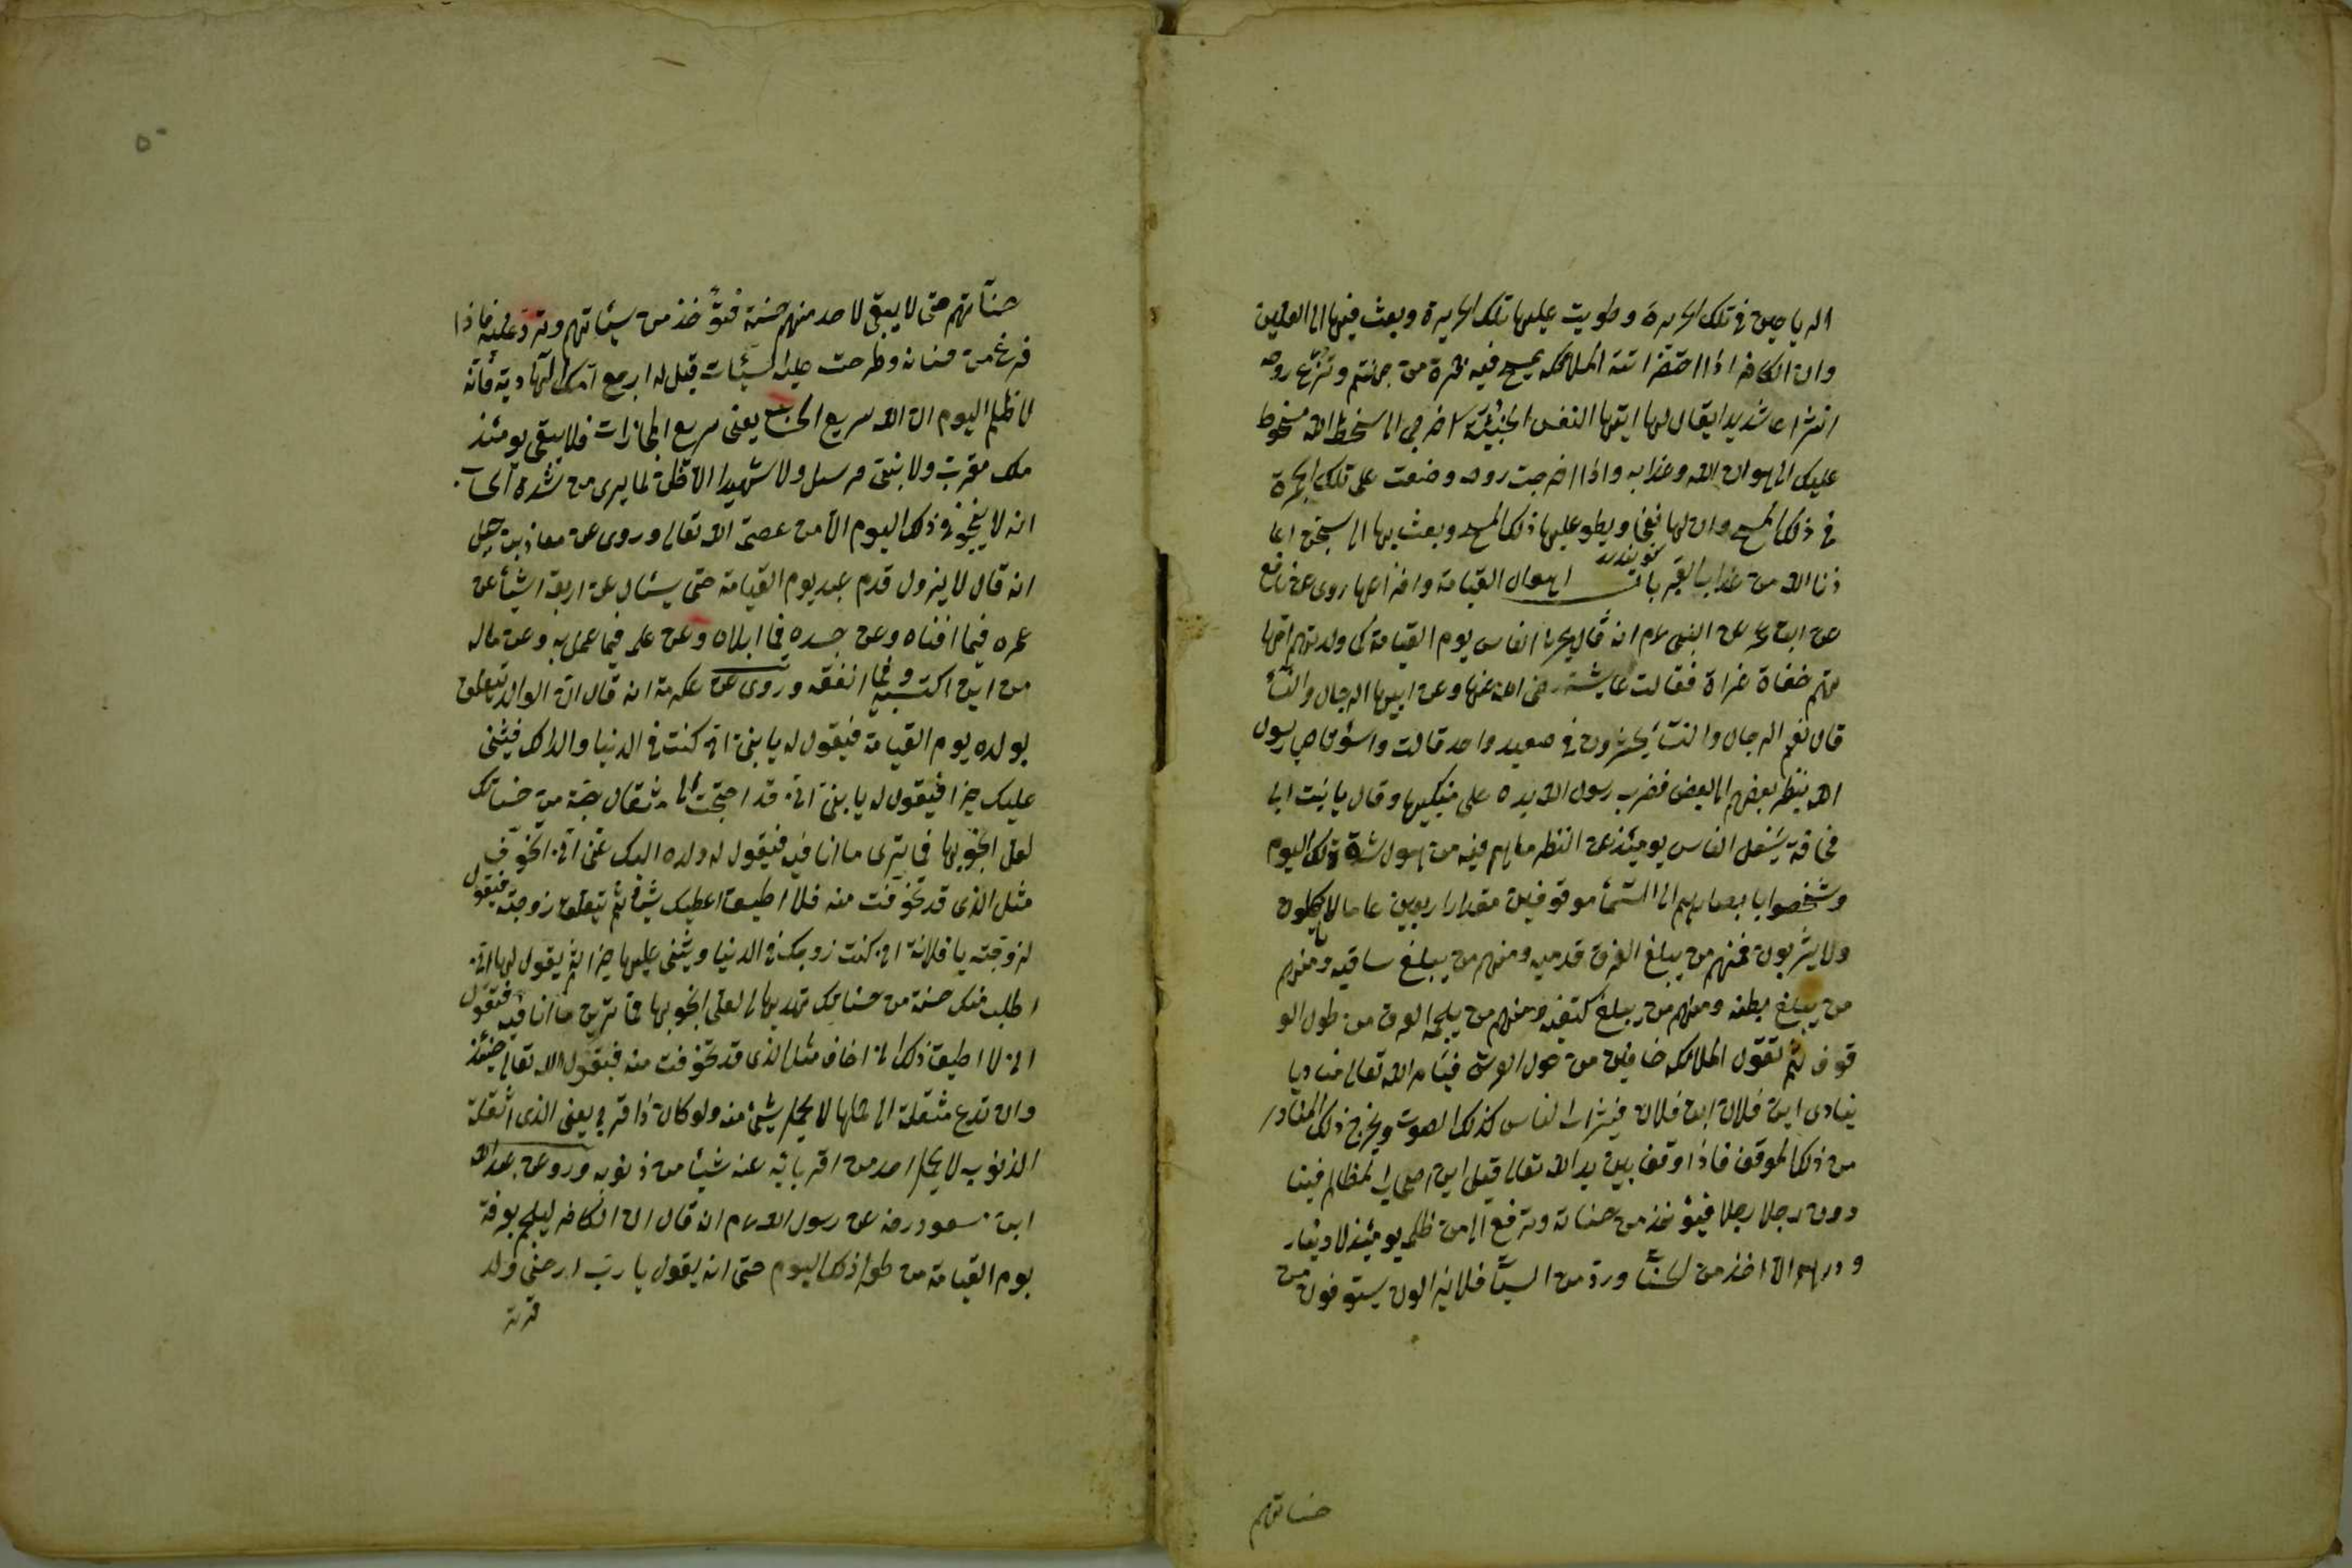 الرياحين في تلك الحريرة وطويت عليها تلك الحريرة وبعث فيها الى العليين
وان الكافر اذا احتضر اتته الملائكه بمسح فيه جمرة من جهنم وتنزع روحه
انتزاعا شديدا يقال لها ايتها النفس الخبيثة اخرجي الى سخط الله مسخوط
عليك الى هوان الله وعذابه واذا اخرجت روحه وضعت على تلك الجمرة
في ذلك المسح وان لها نفخا ويطو عليها ذلك المسح وبعث بها الى سجين اعا
ذنا الله من عذاب القبر باب اهوال القيامة وافزاعها روى عن نافع
عن ابن عمر عن النبى عم انه قال يحشر الناس يوم القيامة كما ولدتهم امها
تهم حفاة عراة فقالت عايشة رضى الله عنها وعن ابيها الرجال والنسأ
قال نعم الرجال والنسأ يحشرون في صعيد واحد قالت واسؤتاه يا رسول
الله ينظر بعضهم الى بعض فضرب رسول الله يده على منكبيها وقال يا بنت ابى
قحافة يشغل الناس يومئذ عن النظر مالهم فيه من هول شدة ذلك اليوم
وشخصوا بابصارهم الى السمأ موقوفين مقدار اربعين عاما لا يأكلون
ولا يشربون فمنهم من يبلغ العرق قدميه ومنهم من يبلغ ساقيه ومنهم
من يبلغ بطنه ومنهم من يبلغ كتفيه ومنهم من يلجمه العرق من طول الو
قوف ثم تقول الملائكه حافين من حول العرش فيامر الله تعالى مناديا
ينادى اين فلان ابن فلان فيشراب الناس كذلك الصوت ويخرج ذلك المنادى
من ذلك الموقف فاذا وقف بين يدي الله تعالى قيل اين اصحاب المظالم فينا
دون رجلا رجلا فيؤخذ من حسناته وترفع الى من ظلمه يومئذ لا دينار
ودرهم الا اخذ من الحسنأ ورد من السيأ فلا يزالون يستوفون من
حسناتهم
حسناتهم حتى لا يبقى لاحد منهم حسنة فيؤخذ من سيئاتهم وترد عليه فاذا
فرغ من حسناته وطرحت عليه السيئات قيل له ارجع امك الهاوية فانه
لا ظلم اليوم ان الله سريع الحساب يعنى سريع المجازات فلا يبقى يومئذ
ملك مقرب ولا نبى مرسل ولا شهيد الا ظن لما يرى من شدة الحساب
انه لا ينجو فى ذلك اليوم الا من عصمه الله تعالى وروى عن معاذ بن جبل
انه قال لا يزول قدم عبد يوم القيامة حتى يسئل عن اربعة اشيأ عن
عمره فيما افناه وعن جسده فيما ابلاه وعن علمه فيما عمل به وعن ماله
من اين اكتسبه وفيما انفقه وروى عن عكرمة انه قال ان الوالد يتعلق
بولده يوم القيامة فيقول له يا بنى انى كنت في الدنيا والداك فيثنى
عليك خيرا فيقول له يا بنى انى قد احتجت الى مثقال حبة من حسناتك
لعل انجو بها فما ترى ما انا فيه فيقول له ولده اليك عنى انى اتخوف
مثل الذى قد تخوفت منه فلا اطيق اعطيك شيأ ثم يتعلق زوجته فيقول
لزوجته يا فلانة انى كنت زوجك في الدنيا ويثنى عليها خيرا ثم يقول لها انى
اطلب منك حسنة من حسناتك تهديها لى لعلى انجو بها فما ترين ما انا فيه فتقول
انى لا اطيق ذلك انى اخاف مثل الذى قد تخوفت منه فيقول الله تعالى حينئذ
وان تدع مثقلة الى حملها لا يحمل منه شيئ ولو كان ذا قربى يعنى الذى اثقلته
الذنوب لا يحمل احد من اقربائه عنه شيئا من ذنوبه وروى عن عبد الله
ابن مسعود رضه عن رسول الله عم انه قال ان الكافر ليلجم بعرقه
يوم القيامة من طول ذلك اليوم حتى انه يقول يا رب ارحمنى ولد